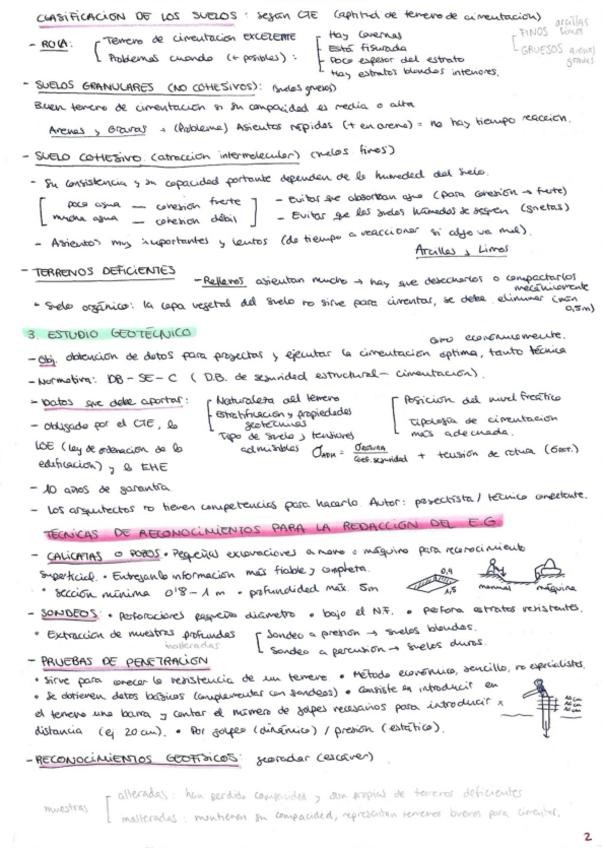 CLASIFICACIÓN DE LOS SUELOS: según CTE (aptitud de terreno de cimentación)
FINOS arcillas limos
GRUESOS arenas gravas
- ROCA: Terreno de cimentación EXCELENTE
Problemas cuando (+ posibles):
Hay cavernas
Está fisurada
Poco espesor del estrato
Hay estratos blandos interiores.
- SUELOS GRANULARES (NO COHESIVOS): (suelos gruesos)
Buen terreno de cimentación si su compacidad es media o alta
Arenas y Gravas → (Problema) Asientos rápidos (+ en arena) = no hay tiempo reacción.
- SUELO COHESIVO (atracción intermolecular) (suelos finos)
- Su consistencia y su capacidad portante dependen de la humedad del suelo.
poca agua — cohesión fuerte
mucha agua — cohesión débil
- Evitar que absorban agua (para cohesión → fuerte)
- Evitar que los suelos húmedos se sequen (grietas)
- Asientos muy importantes y lentos (da tiempo a reaccionar si algo va mal).
Arcillas y Limos
- TERRENOS DEFICIENTES
- Rellenos asientan mucho → hay que desecharlos o compactarlos mecánicamente
* Suelo orgánico: la capa vegetal del suelo no sirve para cimentar, se debe eliminar (mín 0,5m)
3. ESTUDIO GEOTÉCNICO
- Obj. obtención de datos para proyectar y ejecutar la cimentación óptima, tanto técnica como económicamente.
- Normativa: DB-SE-C (D.B. de seguridad estructural - cimentación).
- Datos que debe aportar:
Naturaleza del terreno
Estratificación y propiedades geotécnicas
Tipo de suelo y tensiones admisibles
Posición del nivel freático
Tipología de cimentación más adecuada.
- Obligado por el CTE, la LOE (ley de ordenación de la edificación) y la EHE
σADM = σROTURA / coef. seguridad → tensión de rotura
- 10 años de garantía
- Los arquitectos no tienen competencias para hacerlo. Autor: proyectista / técnico competente.
TÉCNICAS DE RECONOCIMIENTOS PARA LA REDACCIÓN DEL E.G
- CALICATAS O POZOS • Pequeñas excavaciones a mano o máquina para reconocimiento
superficial. • Entregan la información más fiable y completa.
* sección mínima 0'8 - 1 m • profundidad máx. 5m
0,9
1,5
manual
máquina
- SONDEOS: • Perforaciones pequeño diámetro • bajo el N.F. • perfora estratos resistentes.
* Extracción de muestras profundas
inalteradas
Sondeo a presión → suelos blandos.
Sondeo a percusión → suelos duros.
- PRUEBAS DE PENETRACIÓN
• Sirve para conocer la resistencia de un terreno • Método económico, sencillo, no especialistas
• Se obtienen datos básicos (complementar con sondeos) • Consiste en introducir en
el terreno una barra y contar el número de golpes necesarios para introducir x
distancia (ej 20 cm). • Por golpeo (dinámico) / presión (estático).
- RECONOCIMIENTOS GEOFÍSICOS: georadar (escáner)
muestras
alteradas: han perdido compacidad y son propias de terrenos deficientes
inalteradas: mantienen su compacidad, representan terrenos buenos para cimentar.
2